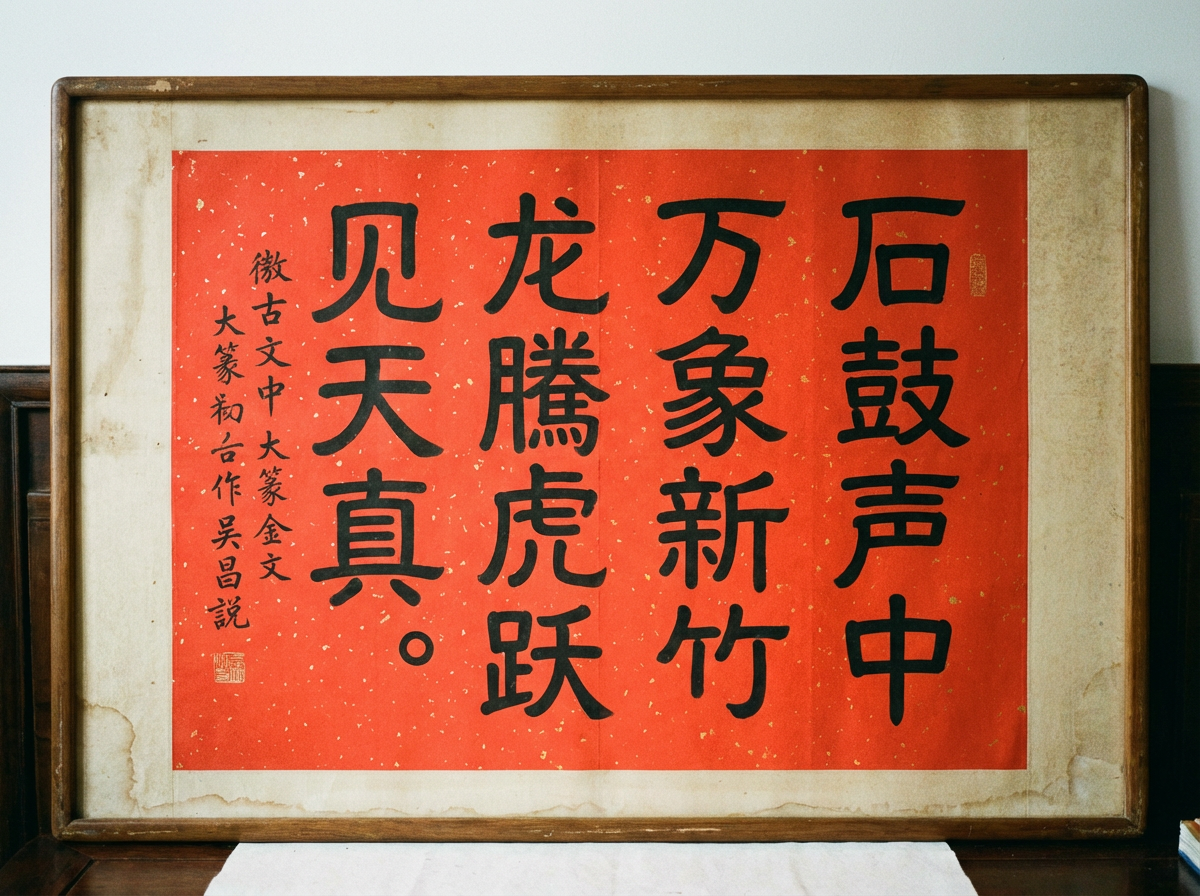 石鼓声中
万象新竹
龙騰虎跃
见天真。
古文中大篆金文
大篆作吴昌説